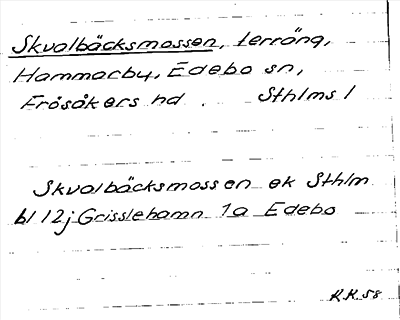 Skvalbäcksmossen, terräng,
Hammarby, Edebo sn,
Frösåkers hd. Sthlms l
Skvalbäcksmossen ek Sthlm
bl 12j Grisslehamn 1a Edebo
R.K. 58